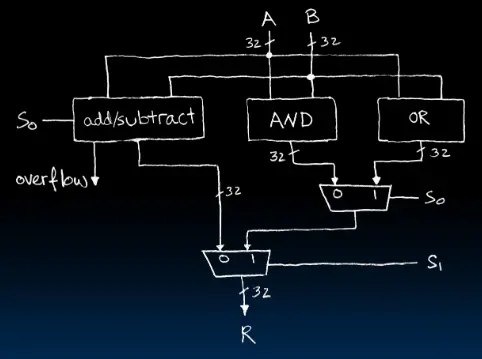 A B
32 32
S₀ add/subtract AND OR
32 32
overflow
32
0 1 S₀
0 1 S₁
32
R